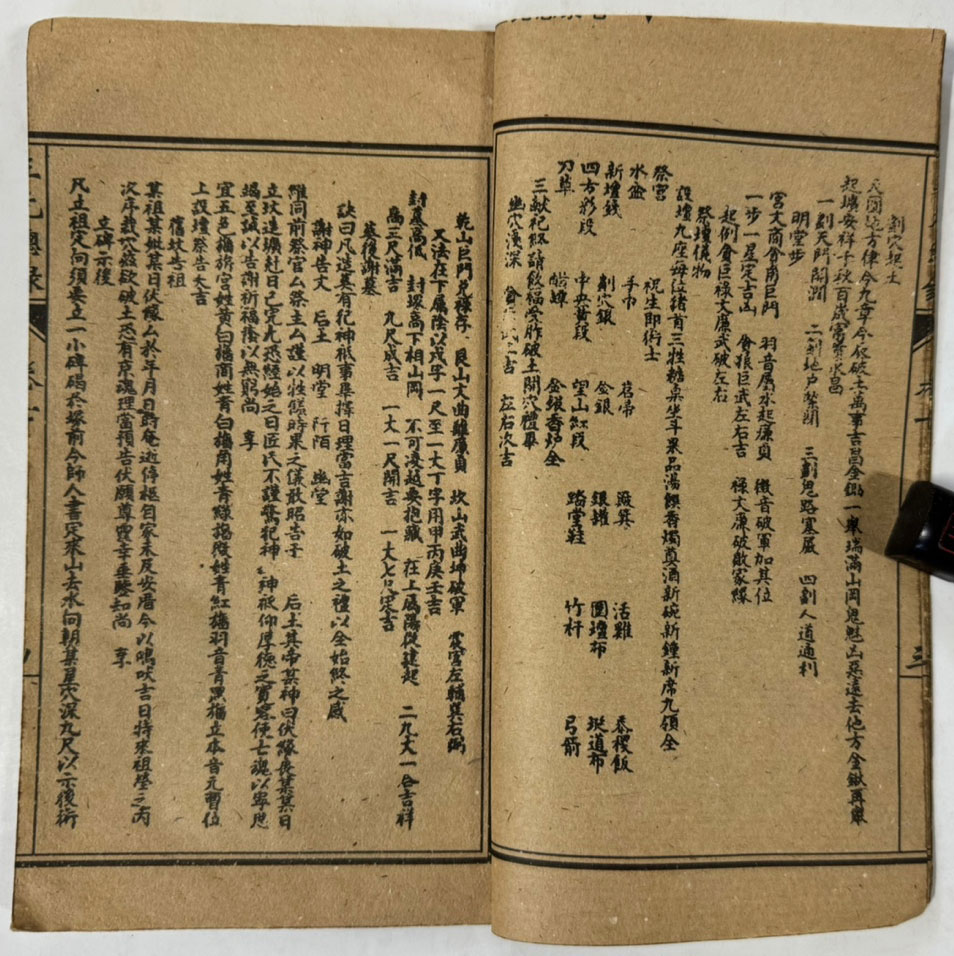 劄穴起土
天圓地方律令九章今破破土萬事吉昌金鍬一舉瑞滿山岡鬼魅凶惡遠去他方金鍬再舉
起墳安祥千秋百歲富貴永昌
一劄天門開闊 二劄地戶緊閉 三劄鬼路塞嚴 四劄人道通利
明堂步
宮文商貪角巨門 羽音屬水起廉貞 徵音破軍加其位
一步一星定吉凶 貪狼巨武左右吉 祿文廉破敵家緣
起例貪巨祿文廉武破左右
祭壇儀物
設壇九座每位猪首三牲糖桌坐斗果品湯饌香燭奠酒新碗新鍾新席九領全
祭官 祝生即術士
水盆 手巾 苕帚 簸箕 活雞 黍稷飯
新壇錢 劄穴銀 金銀 銀罐 圍壇布 埏道布
四方彩段 中央黃段 望山紅段 踏堂鞋 竹杆 弓箭
刀草 金銀香炉全
三獻祀賜請飲福受胙破土開穴禮畢
幽穴淺深 左右次吉
乾山巨門兌祿存 艮山文曲離廉貞 坎山武曲坤破軍 震宮左輔巽右弼
又法在下屬陰以戊字一尺至一大丁字用甲丙庚壬吉
封墓高低 封塚高下相山岡 不可凌越要抱藏 在上屬陽從建起 二九丈一合吉祥
高三尺滿吉 九尺成吉 一丈一尺開吉 一丈七尺定吉
墓後謝墓
訣曰凡造墓有祀神祇事集擇日理當吉謝亦如破土之禮以全始終之感
謝神告文 后土 明堂 阡陌 幽堂
維同前祭官厶祭主厶謹以牲饌時果之儀敢昭告于 后土其帝某神曰伏緣長某某日
立坟造壙赴日已完九恐經始之日匠氏不謹驚犯神 神祇仰厚德之寬容使亡魂以寧恩
竭至誠以告謝祈福陰以無窮尚 享
宜五色旛旂宮姓黃白旛商姓青白旛角姓青綠旛徵姓青紅旛羽音青黑旛立本音元曹位
上設壇祭告大吉
舊坟告祖
某祖某妣某日伏緣厶於年月日時奄逝停柩自家未及安厝今以鳴吠吉日特來祖塋之丙
次序栽穴茲欲破土恐有京魂理當預告伏願尊靈幸垂監知尚 享
立碑示後
凡立祖定向須要立一小碑碣於塚前令師人書定來山去水向朝某星穴深九尺以示後術